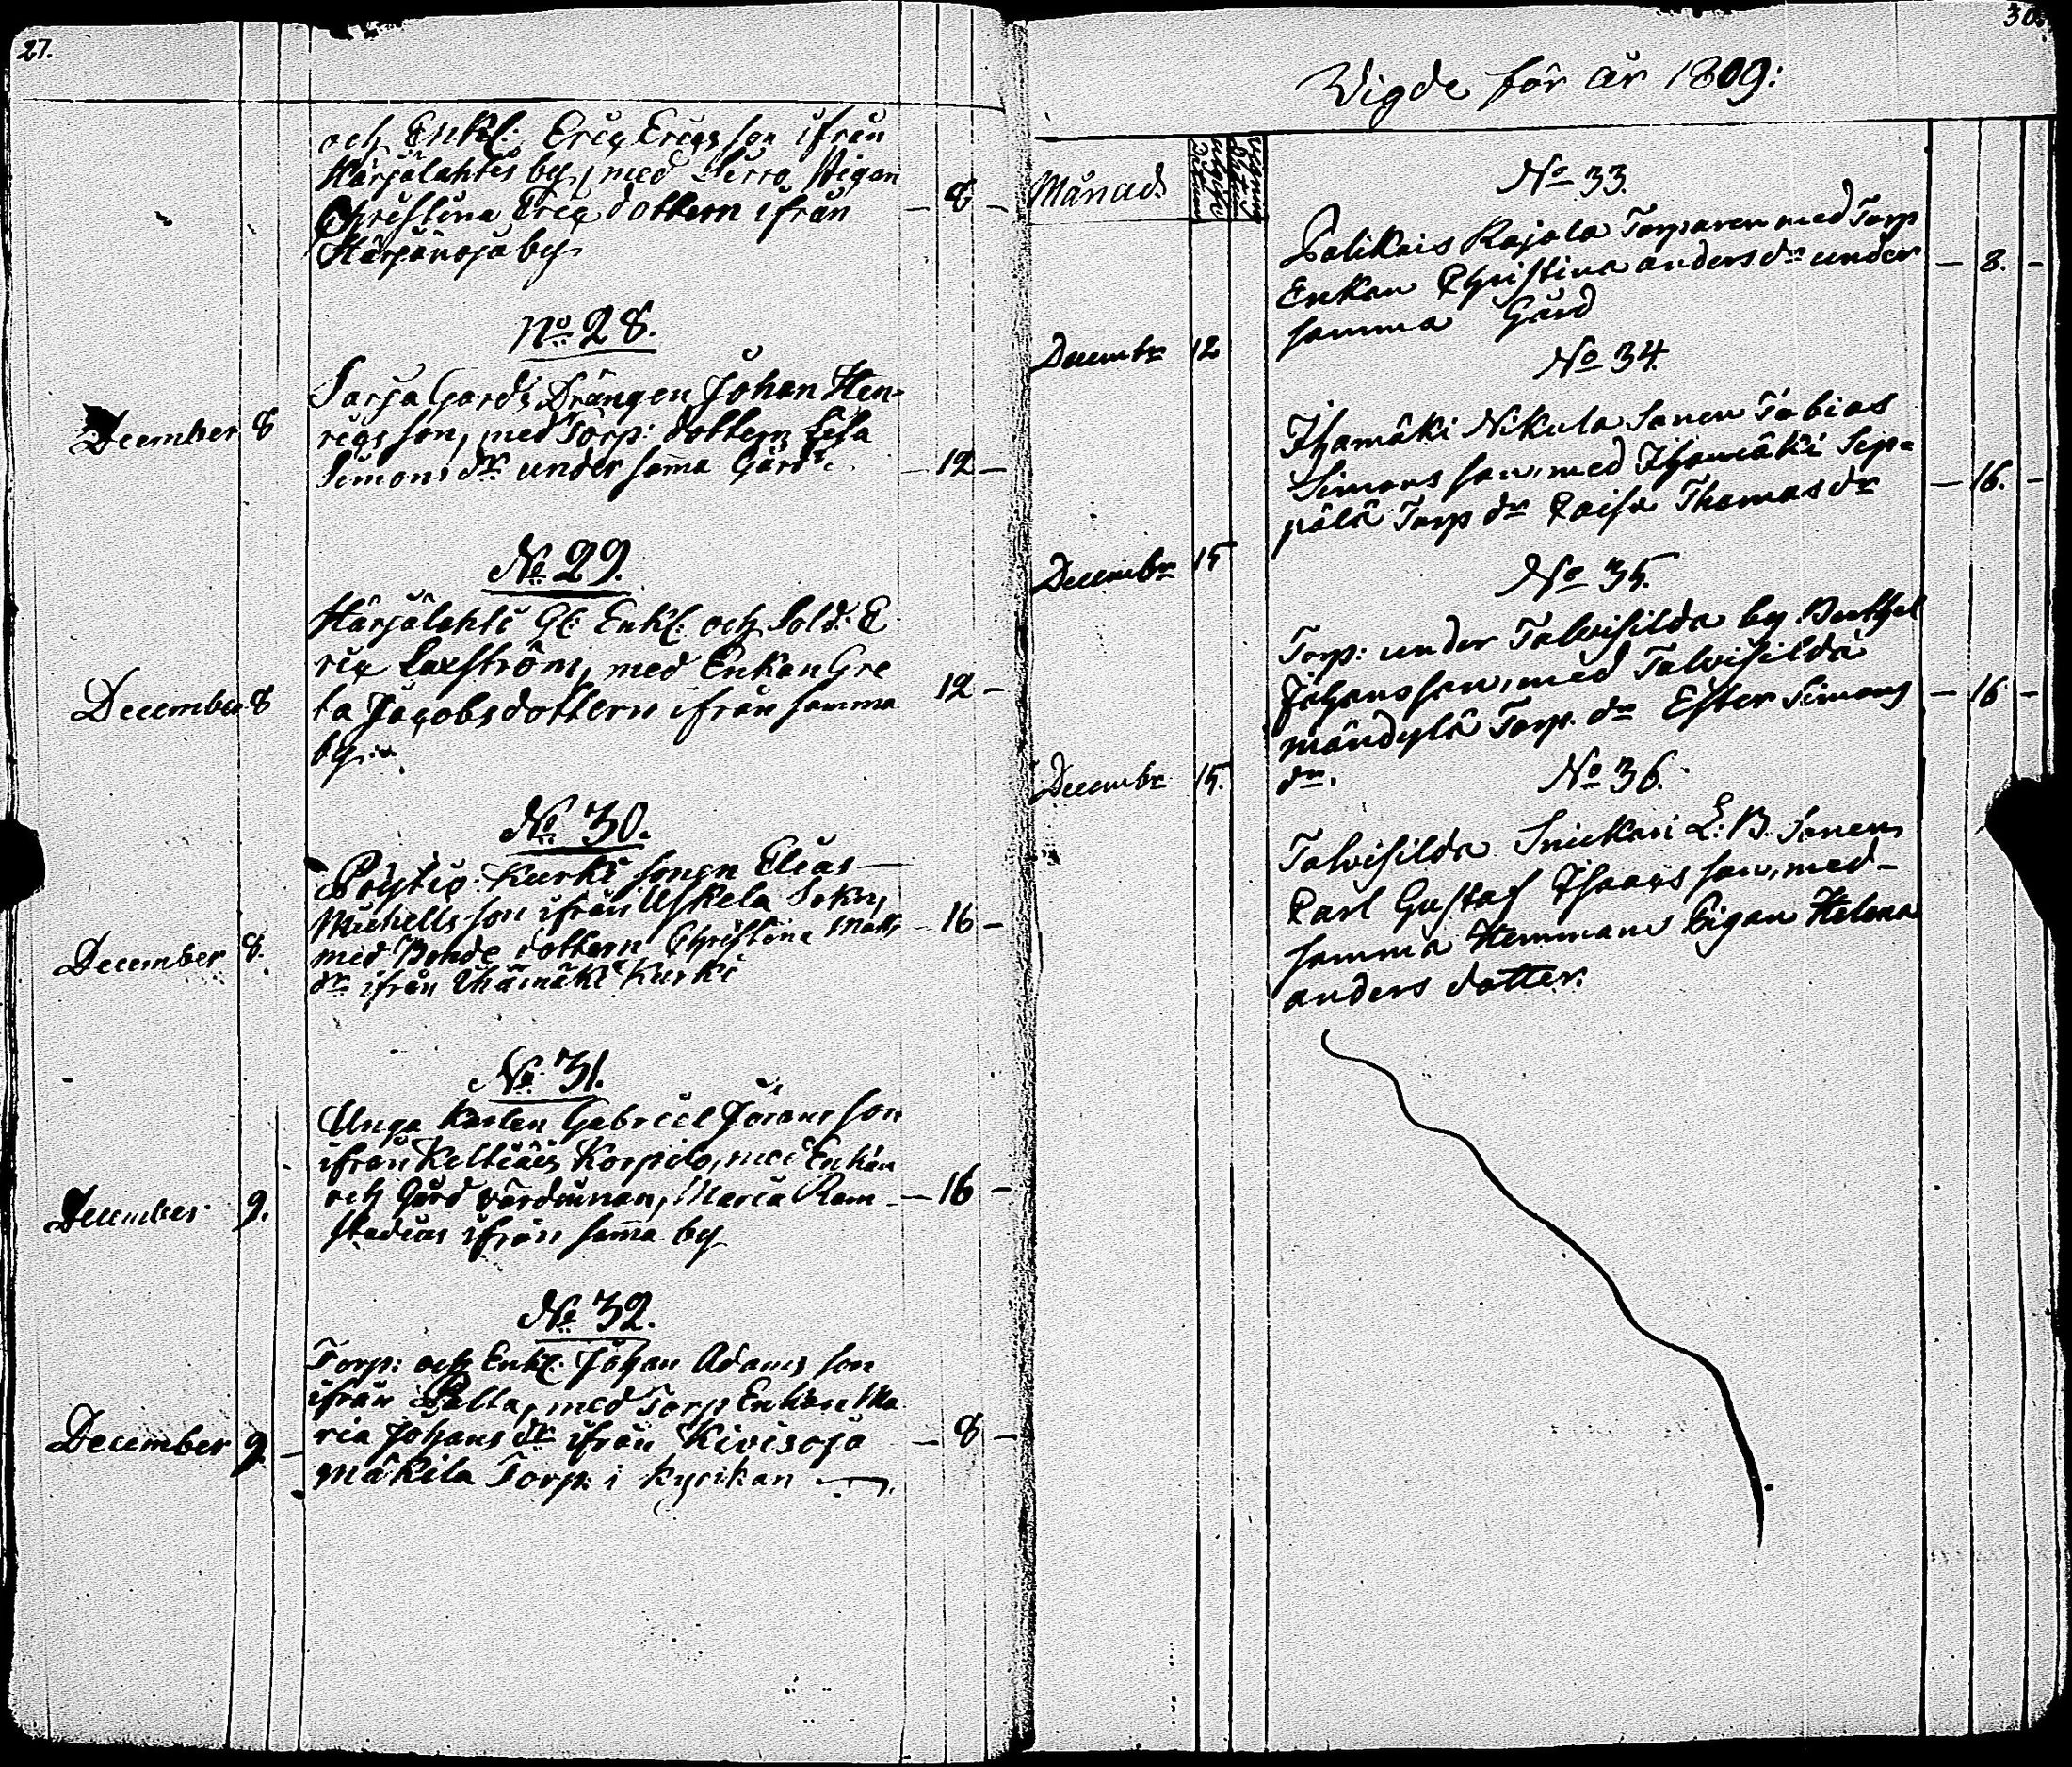 27.
och Enkl: Eric Ericsson ifrån
Härjälahtis by, med Pigan
Christina Eric dottern ifrån
Härjänoja by
8
No 28.
December 8
Sarja Gårds Drängen Johan Hen-
rics son, med Torp: dottern Lisa
Simons dr under sama Gård
12
No 29.
December 8
Härjälahti Enkl: och Sold: E
ric Laxström, med Enkan Gre
ta Jacobs dottern ifrån samma
by
12
No 30.
December 8.
Pöytis Kurki sonen Elias
Michells son ifrån Uskela Sokn,
med Bonde dottern Christina Matts
dr ifrån Ihämäki Kurki
16
No 31.
December 9.
Unga Karlen Gabriel Jörans son
ifrån Keltiäis Korpilo, med Enkan
och Gård värdinnan, Maria Ram
stadius ifrån sama by
16
No 32.
December 9
Torp: och Enkl: Johan Adams son
ifrån med Torp Enkan Ma
ria Johans dr ifrån Kivisoja
Mäkila Torp: i kyrikan
8
30.
Vigde för år 1809:
Månad
No 33.
Palikais Rajala Torparen med Torp
Enkan Christina anders dr under
samma Gård
8.
Decembr 12
No 34.
Ihamäki Nikula Sonen Tobias
Simons son, med Ihamäki Sep-
pälä Torp dr Caisa Thomas dr
16.
Decembr 15
No 35.
Torp: under Talvisilda by Berthel
Johans son, med Talvisilda
mändylä Torp. dr Ester Simons
dr.
16
Decembr 15.
No 36.
Talvisilda Snickari L:B. Sonen
Carl Gustaf Isaacs son, med
samma Hemmans Pigan Helena
anders dotter.